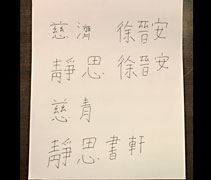 慈濟 徐晉安
靜思 徐晉安
慈青
靜思書軒